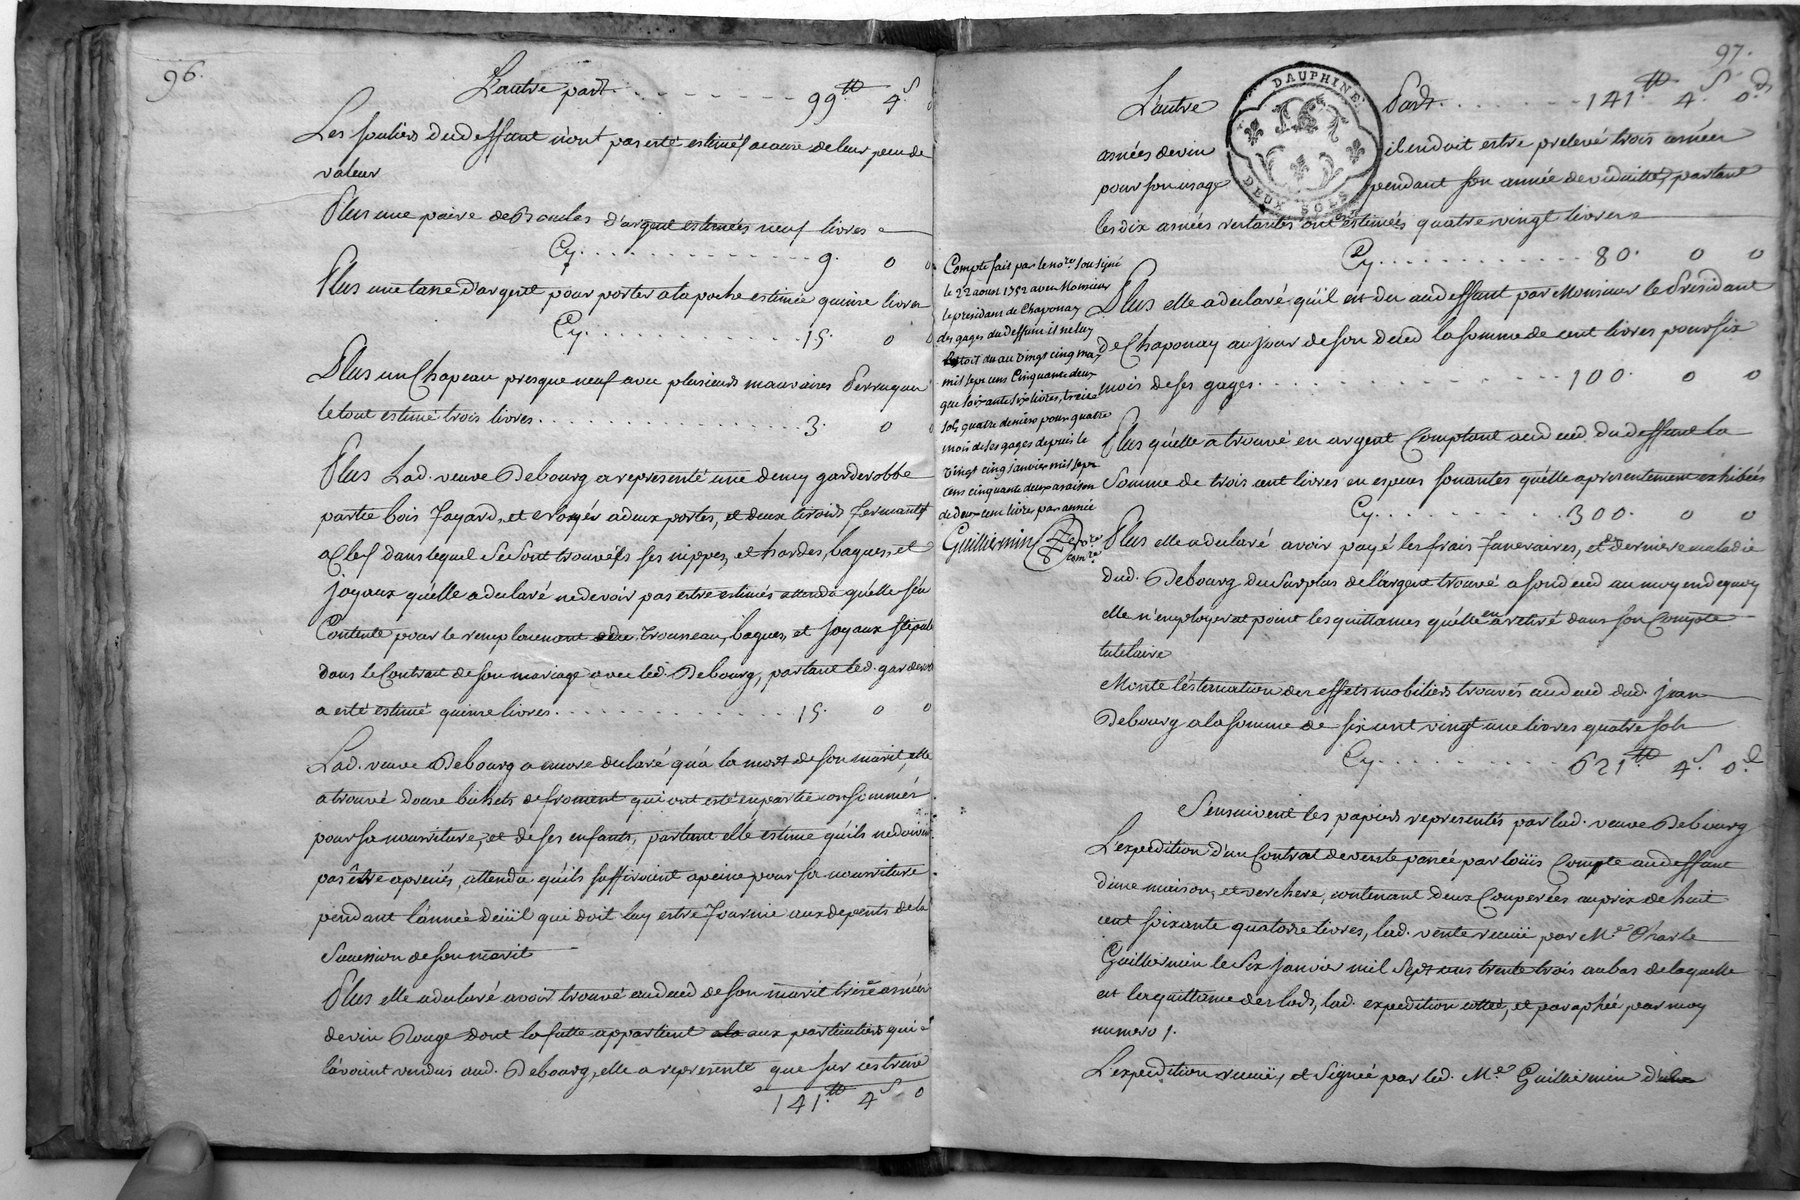 96.
L'autre part . . . . . . . . . 99.tt 4.s 0
Les souliers dud deffunt n'ont pas esté estimés acause de leur peu de
valeur
Plus une paire de Boucles d'argent estimées neuf livres
Cy . . . . . . . . . . . . . 9. 0 0
Plus une tasse d'argent pour porter a la poche estimée quinse livres
Cy . . . . . . . . . . . . . 15. 0 0
Plus un Chapeau presque neuf avec plusieurs mauvaises Perruques
le tout estimé trois livres . . . . . . . . . . . . . 3. 0 0
Plus Lad. veuve Debourg a representé une demy garderobbe
partie bois fayard, et noyer a deux portes, et deux tiroirs fermants
a Clef dans lequel se sont trouvées ses nippes, et hardes, bagues, et
joyaux qu'elle a declaré ne devoir pas estre estimés attendu qu'elle s'en
Contente pour le remplacement de ses trousseau, bagues, et joyaux stipulé
dans le Contrat de son mariage avec led. Debourg, partant led. garderobe
a esté estimé quinse livres . . . . . . . . . . . . 15. 0 0
Lad. veuve Debourg a encore declaré qu'a la mort de son marit, elle
a trouvé douse bichets de froment qui ont esté en partie consommés
pour sa nourriture, et de ses enfants, partant elle estime qu'ils ne doivent
pas être apreciés, attendu qu'ils suffiroient a peine pour sa nourriture
pendant l'année deüil qui doit luy estre fournie aux depents de la
Succession de son marit
Plus elle a declaré avoir trouvé aud deced de son marit treise asnées
de vin Rouge dont la futte appartient aux particuliers qui
l'avoient vendus aud. Debourg, elle a representé que sur ces treise
141.tt 4.s 0
97.
L'autre Part . . . . . . . 141.tt 4.s 0.d
DAUPHINÉ
DEUX SOLS
asnées de vin il en doit estre prelevé trois asnées
pour son usage pendant son année de viduitté, partant
les dix asnées restantes ont estimées quatre vingt livres
Cy . . . . . . . . . . . . 80. 0 0
Compte fait par le no.re sousigné
le 22 aoust 1752 avec Monsieur
le president de Chaponay
des gages du deffunt il ne luy
restoit du au vingt cinq may
mil sept cens Cinquante deux
que soixante six livres, treise
sols quatre deniers pour quatre
mois de ses gages depuis le
vingt cinq janvier mil sept
cens cinquante deux a raison
de deux cens livres par année
Guillermin
Plus elle a declaré qu'il est du aud deffunt par Monsieur le President
de Chaponay au jour de son deced la somme de cent livres pour six
mois de ses gages . . . . . . . . . . . . . 100. 0 0
Plus qu'elle a trouvé en argent Comptant aud deced. du deffunt la
Somme de trois cent livres en especes sonantes qu'elle a presentement exhibées
Cy . . . . . . . . . . . . 300. 0 0
Plus elle a declaré avoir payé les frais funeraires, et de derniere maladie
dud. Debourg du surplus de l'argent trouvé a son deced au moyen de quoy
elle n'employerat point les quittances qu'elle en a retiré dans son Compte
tutelaire
Monte l'estimation des effets mobiliers trouvés aud deced dud. jean
Debourg a la somme de six cent vingt une livres quatre sols
Cy . . . . . . . . . . . 621.tt 4.s 0.d
S'ensuivent les papiers representés par lad. veuve Debourg
L'expedition d'un Contrat de vente passée par loüis Compte aud deffunt
d'une maison, et verchere, contenant deux Couperées au prix de huit
cent soixante quatorse livres, lad. vente receüe par M.e Charle
Guillermin le six janvier mil sept cens trente trois au bas de laquelle
est la quittance des lods, lad. expedition cottée, et paraphée par moy
numero 1.
L'expedition receüe, et signée par led. M.e Guillermin